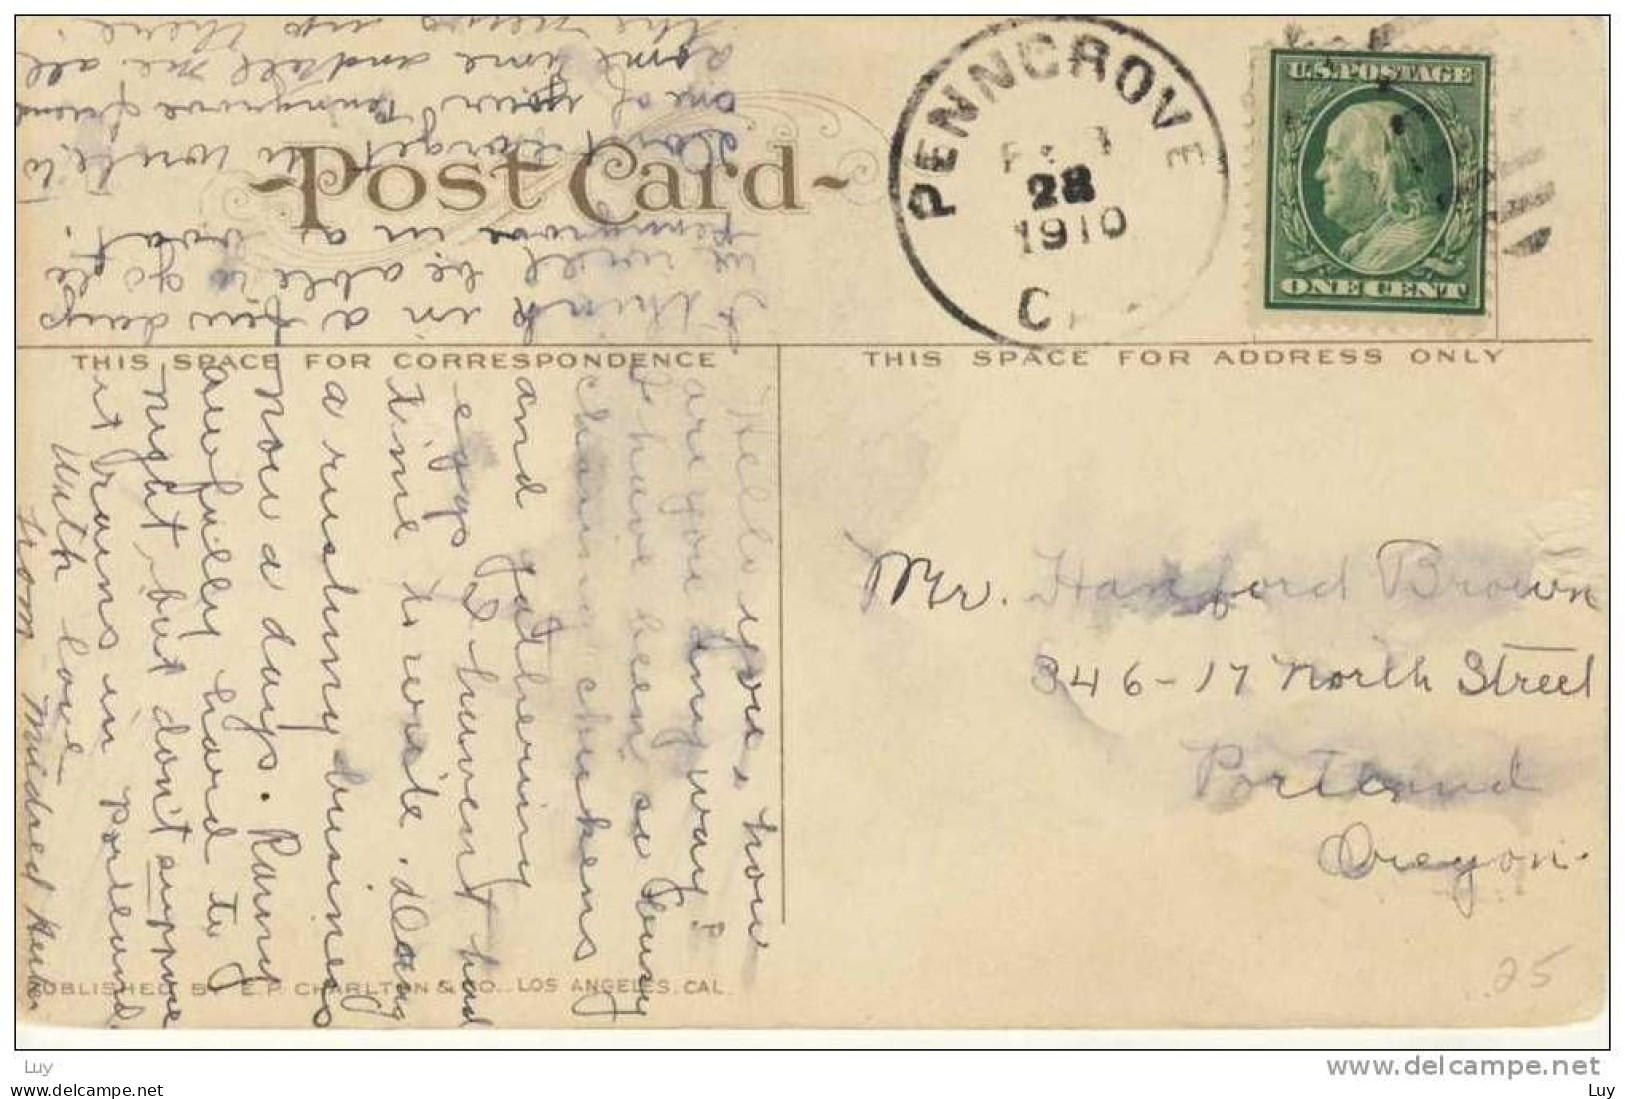 POST CARD
PENNGROVE
28
1910
U.S. POSTAGE
ONE CENT
THIS SPACE FOR CORRESPONDENCE
THIS SPACE FOR ADDRESS ONLY
Hello you, how
are you anyway?
I have been so busy
chasing chickens
and gathering
eggs I havent had
time to write. Doing
a rushing business
now a days. Raining
awfully hard to
night but don't suppose
it rains in Portland.
With love
from Mildred
I think in a few days
we will be able to go to
penngrove in a boat.
Don't forget to write to
one of your Penngrove friends
some time and tell me all
the news up there.
Mr. Hanford Brown
346-17 North Street
Portland
Oregon.
25
PUBLISHED BY E.P. CHARLTON & CO. LOS ANGELES, CAL.
Luy
www.delcampe.net
Luy
www.delcampe.net
Luy